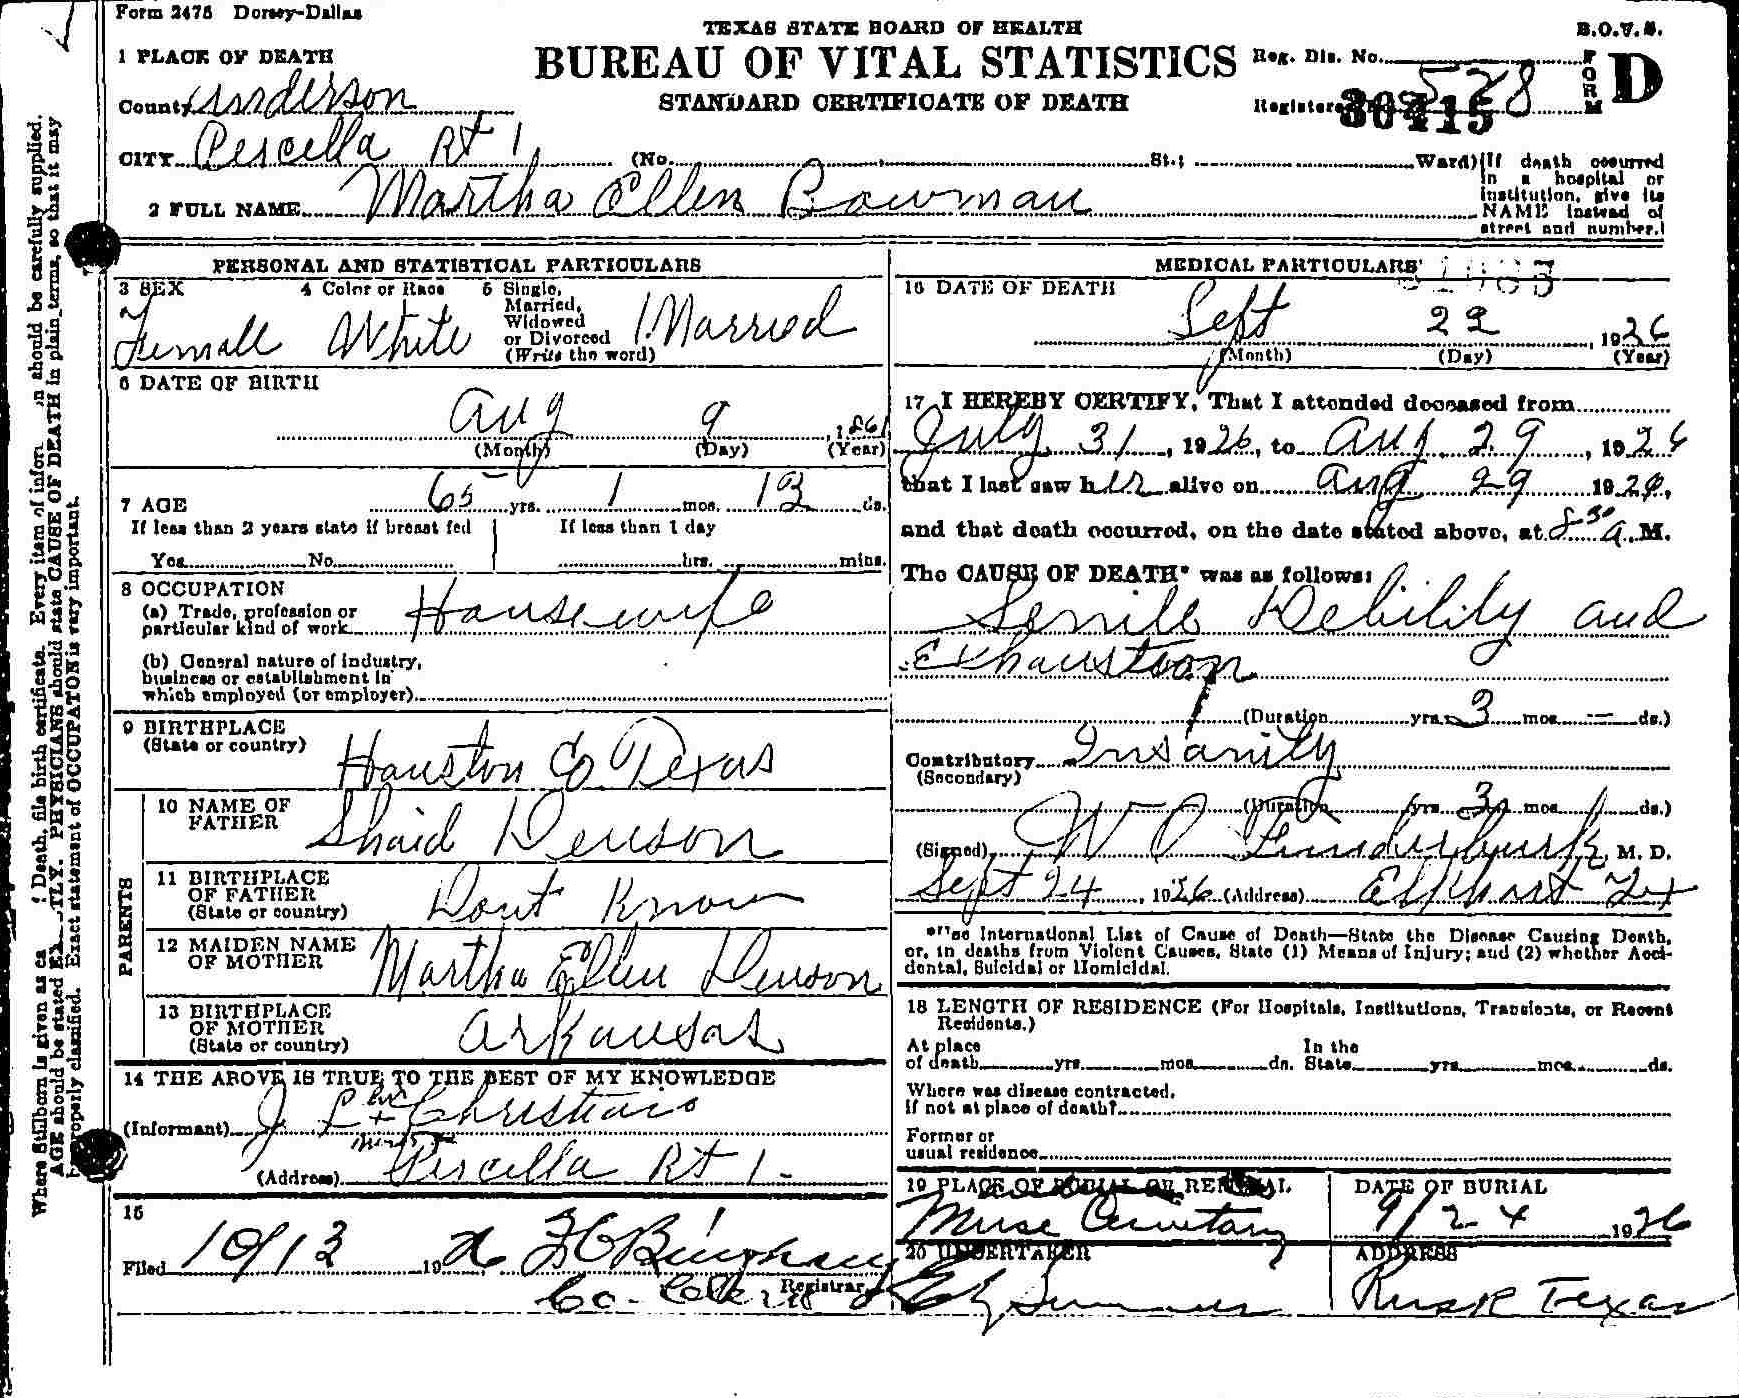 Form 2475 Dorsey-Dallas
TEXAS STATE BOARD OF HEALTH
B.O.V.S.
BUREAU OF VITAL STATISTICS
STANDARD CERTIFICATE OF DEATH
Reg. Dis. No.
528
Registered
FORM D
1 PLACE OF DEATH
County Anderson
CITY Percella Rt 1 (No. St.; Ward)
(If death occurred in a hospital or institution, give its NAME instead of street and number.)
2 FULL NAME Martha Ellen Bowman
PERSONAL AND STATISTICAL PARTICULARS
3 SEX Female
4 Color or Race White
5 Single, Married, Widowed or Divorced (Write the word) Married
6 DATE OF BIRTH
Aug 9, 1861
(Month) (Day) (Year)
7 AGE 65 yrs. 1 mos. 13 ds.
If less than 2 years state if breast fed
Yes No
If less than 1 day
hrs. mins.
8 OCCUPATION
(a) Trade, profession or
particular kind of work Housewife
(b) General nature of industry,
business or establishment in
which employed (or employer)
9 BIRTHPLACE
(State or country) Houston Co Texas
PARENTS
10 NAME OF
FATHER Shaid Denson
11 BIRTHPLACE
OF FATHER
(State or country) Dont Know
12 MAIDEN NAME
OF MOTHER Martha Ellen Denson
13 BIRTHPLACE
OF MOTHER
(State or country) Arkansas
14 THE ABOVE IS TRUE TO THE BEST OF MY KNOWLEDGE
(Informant) J L Christian
(Address) Percella Rt 1-
15
Filed 10/13 1926 Bingham
Registrar
Co. Clerk
MEDICAL PARTICULARS
16 DATE OF DEATH
Sept 22, 1926
(Month) (Day) (Year)
17 I HEREBY CERTIFY, That I attended deceased from
July 31, 1926, to Aug. 29, 1926
that I last saw her alive on Aug 29 1926,
and that death occurred, on the date stated above, at 8 30 a. M.
The CAUSE OF DEATH* was as follows:
Senile Debility and
Exhaustion
(Duration yrs. 3 mos. — ds.)
Contributory Insanity
(Secondary)
(Duration yrs. 3 mos. ds.)
(Signed) W O Funderburk, M. D.
Sept 24, 1926 (Address) Elkhart Tex
International List of Cause of Death—State the Disease Causing Death,
or, in deaths from Violent Causes, State (1) Means of Injury; and (2) whether Acci-
dental, Suicidal or Homicidal.
18 LENGTH OF RESIDENCE (For Hospitals, Institutions, Transients, or Recent
Residents.)
At place
of death yrs. mos. ds.
In the
State yrs. mos. ds.
Where was disease contracted,
if not at place of death?
Former or
usual residence
19 PLACE OF BURIAL OR REMOVAL
Muse Cemetary
DATE OF BURIAL
9/24 1926
20 UNDERTAKER
ADDRESS
Rusk Texas